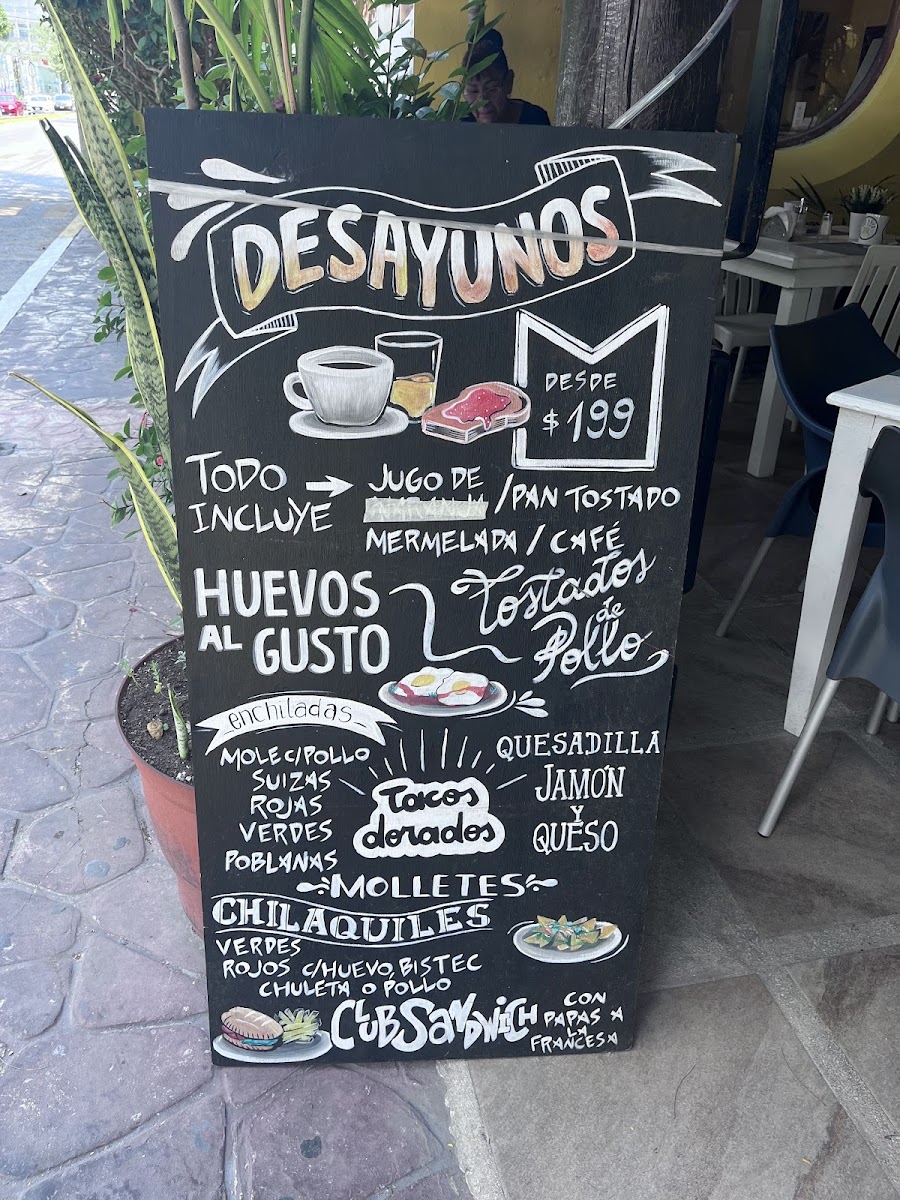 DESAYUNOS
DESDE
$199
TODO
INCLUYE
JUGO DE
/PAN TOSTADO
MERMELADA / CAFÉ
HUEVOS
AL GUSTO
Tostados
de
Pollo
enchiladas
MOLE C/POLLO
SUIZAS
ROJAS
VERDES
POBLANAS
Tacos
dorados
QUESADILLA
JAMÓN
Y
QUESO
MOLLETES
CHILAQUILES
VERDES
ROJOS C/HUEVO, BISTEC
CHULETA O POLLO
CLUB SANDWICH
CON
PAPAS A
LA
FRANCESA